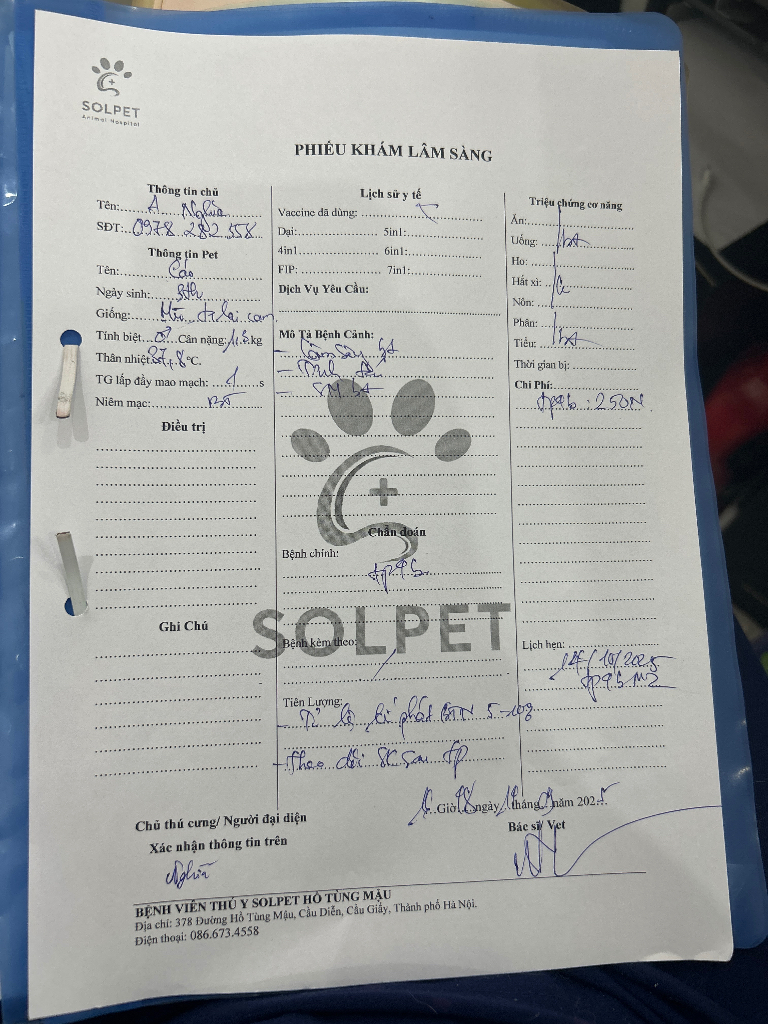 SOLPET
Animal Hospital
PHIẾU KHÁM LÂM SÀNG
Thông tin chủ
Tên: A Nghĩa
SĐT: 0978.282.558
Thông tin Pet
Tên: Cáo
Ngày sinh: 3th
Giống: Mèo
Tính biệt: ♂ Cân nặng: 1,3 kg
Thân nhiệt: 37,8 °C.
TG lấp đầy mao mạch: 1 s
Niêm mạc: BT
Điều trị
Ghi Chú
Lịch sử y tế
Vaccine đã dùng:
Dại: 5in1:
4in1 6in1:
FIP: 7in1:
Dịch Vụ Yêu Cầu:
Mô Tả Bệnh Cảnh:
Chẩn đoán
Bệnh chính:
SOLPET
Bệnh kèm theo: /
Tiên Lượng:
- Tỉ lệ 5-10%
- Theo dõi SK sau tp
Triệu chứng cơ năng
Ăn:
Uống:
Ho:
Hắt xì:
Nôn:
Phân:
Tiểu:
Thời gian bị:
Chi Phí:
250N
Lịch hẹn:
14/10/2025
Giờ ngày tháng 9 năm 2025
Chủ thú cưng/ Người đại diện
Xác nhận thông tin trên
Nghĩa
Bác sĩ/ Vet
BỆNH VIỆN THÚ Y SOLPET HỒ TÙNG MẬU
Địa chỉ: 378 Đường Hồ Tùng Mậu, Cầu Diễn, Cầu Giấy, Thành phố Hà Nội.
Điện thoại: 086.673.4558